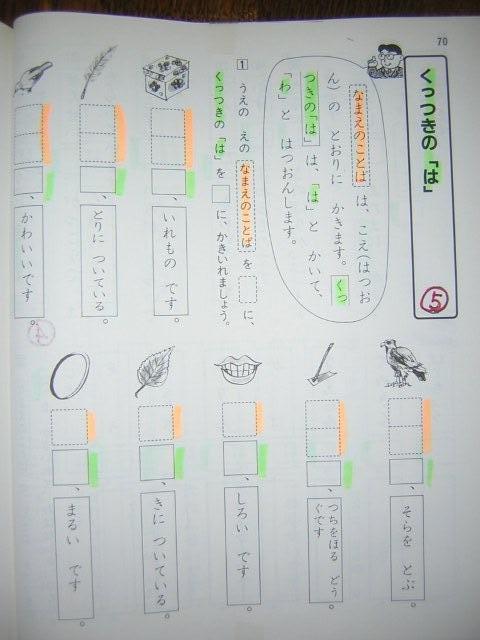 70
くっつきの「は」
⑤
なまえのことば は、こえ(はつお
ん)の とおりに かきます。くっ
つきの「は」は、「は」と かいて、
「わ」と はつおんします。
1 うえの えの なまえのことば を に、
くっつきの「は」を に、かきいれましょう。
、いれもの です。
、とりに ついている。
、かわいいです。
、そらを とぶ。
、つちをほる どう
ぐです。
、しろい です。
、きに ついている。
、まるい です。